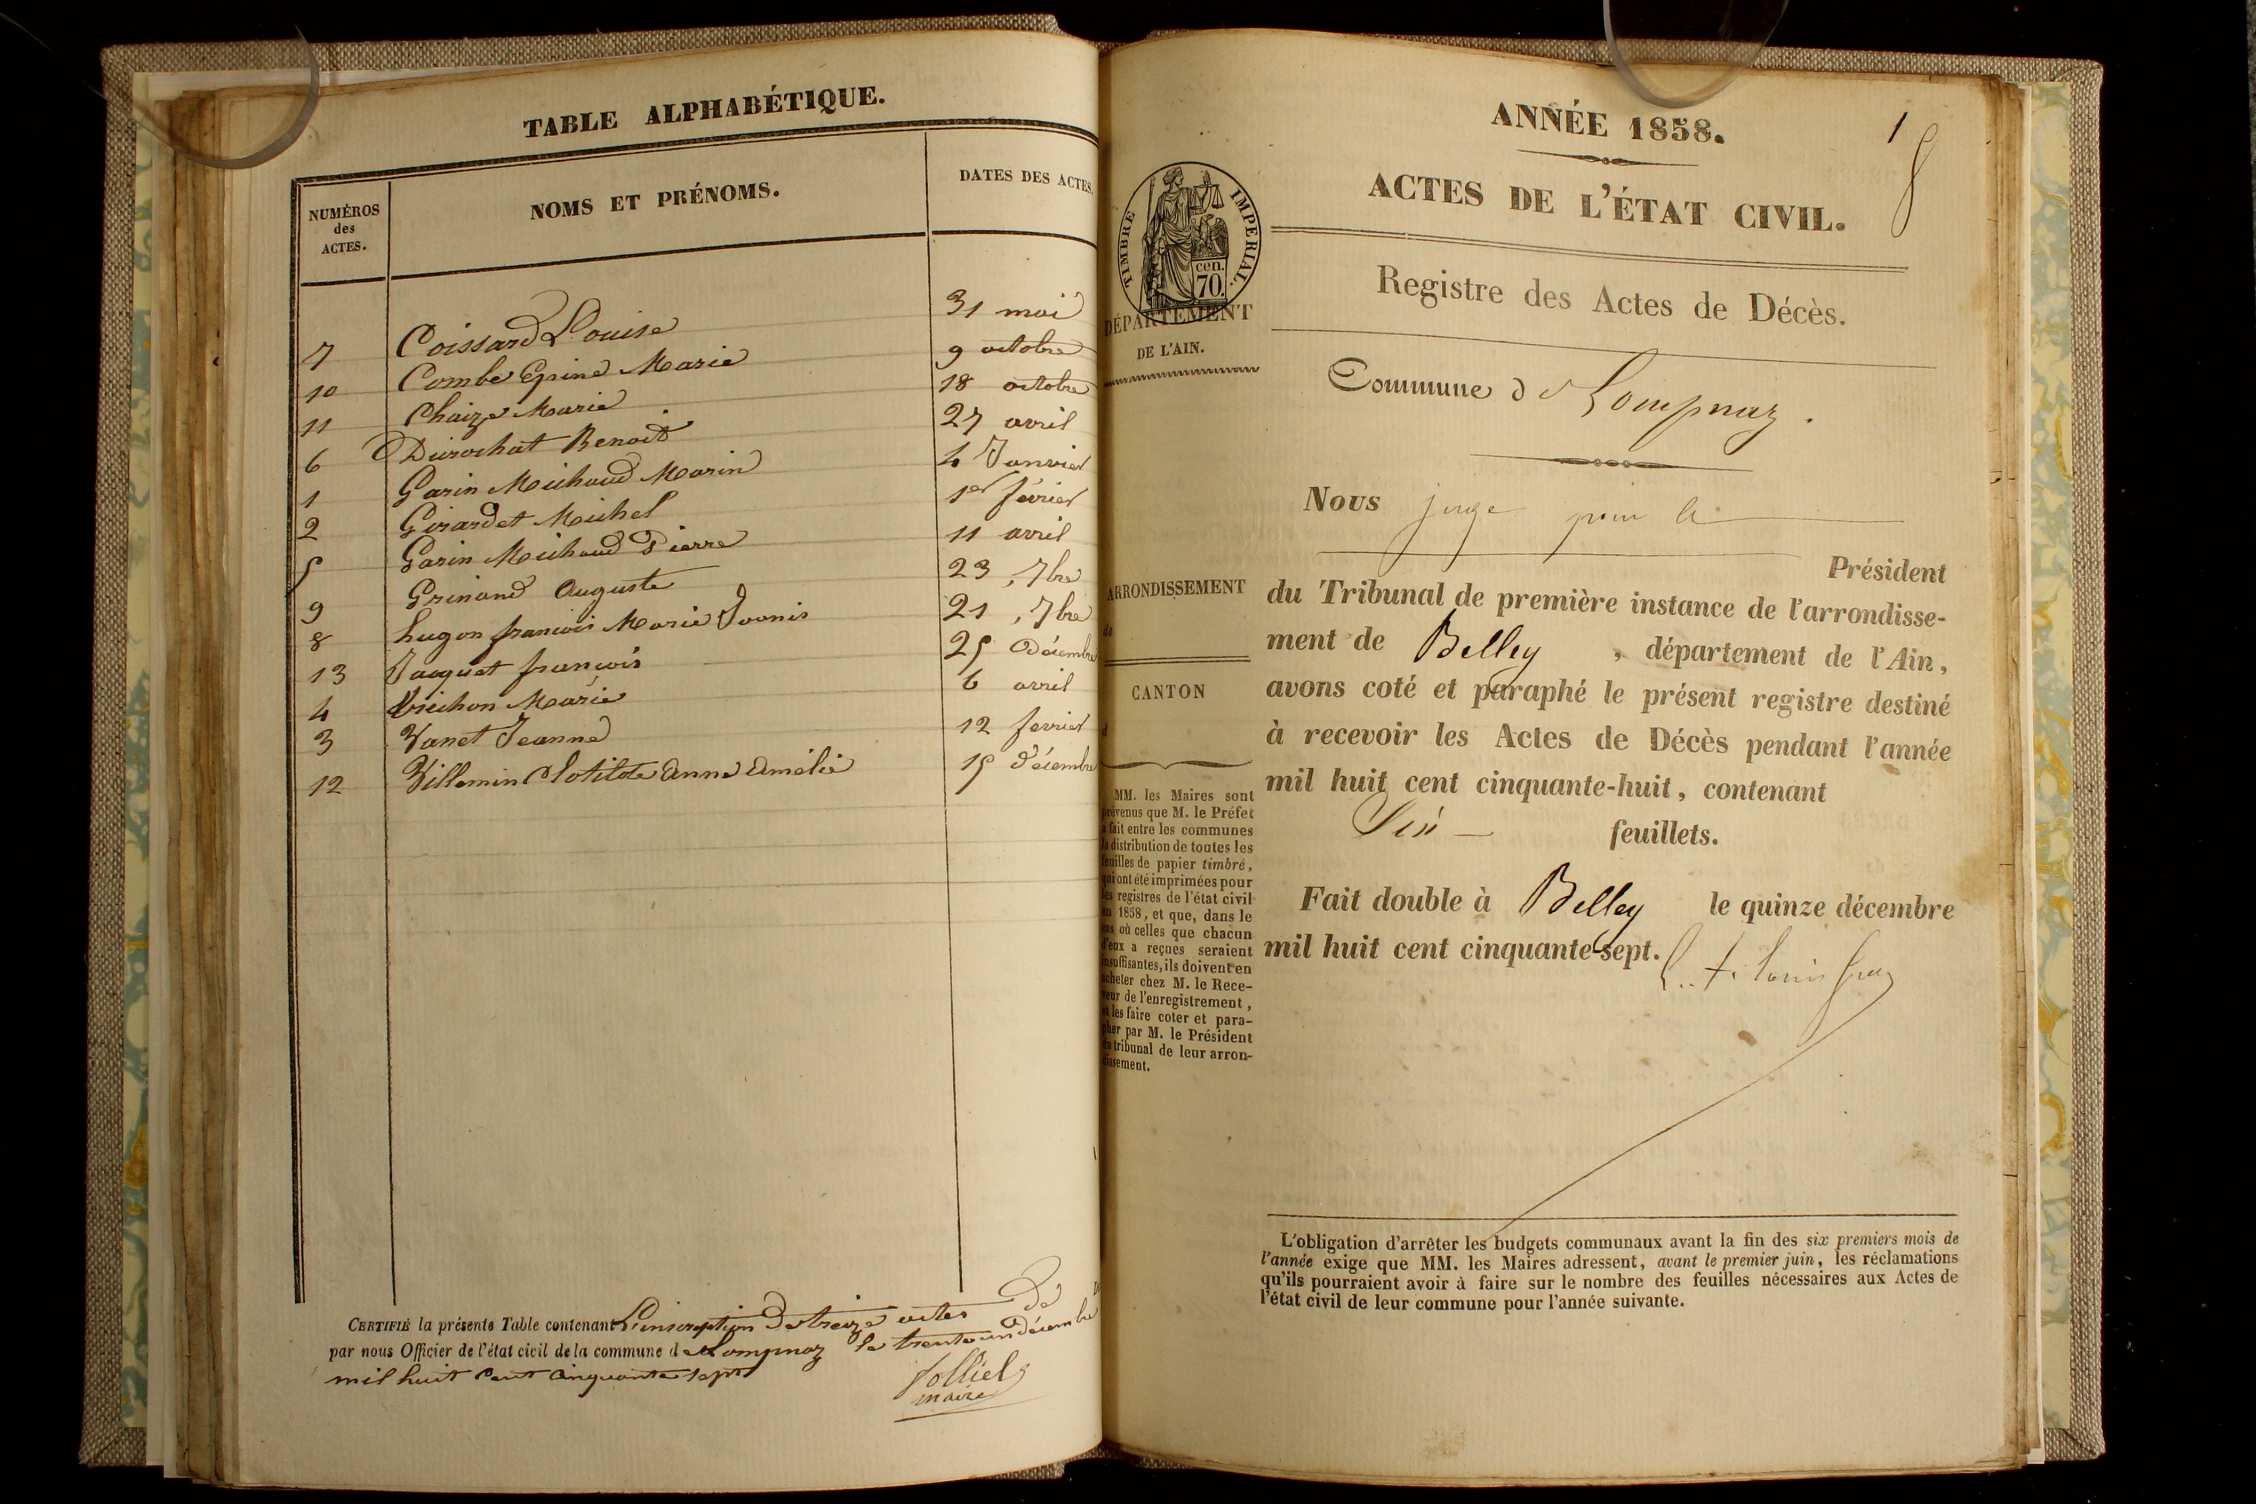 TABLE ALPHABÉTIQUE.
NUMÉROS des ACTES. NOMS ET PRÉNOMS. DATES DES ACTES.
7 Coissard Louise 31 mai
10 Combe Epine Marie 9 octobre
11 Chaize Marie 18 octobre
6 Durochat Benoit 27 avril
1 Garin Michaud Marin 4 Janvier
2 Girardet Michel 1er février
5 Garin Michaud Pierre 11 avril
9 Grinand Auguste 23 7bre
8 hugon françois Marie Joanis 21 7bre
13 Jacquet françois 25 Décembre
4 Trichon Marie 6 avril
3 Vanet Jeanne 12 fevrier
12 Villemin Clotilde anne amélie 15 décembre
CERTIFIÉ la présente Table contenant L'inscription de treize actes de
par nous Officier de l'état civil de la commune de Lompnaz le trente un décembre
mil huit cent cinquante sept
Jolliet
maire
ANNÉE 1858.
1
8
ACTES DE L'ÉTAT CIVIL.
Registre des Actes de Décès.
TIMBRE IMPERIAL.
cen.
70.
DÉPARTEMENT
DE L'AIN.
Commune de Lompnaz.
Nous juge pour le
Président
du Tribunal de première instance de l'arrondisse-
ment de Belley, département de l'Ain,
avons coté et paraphé le présent registre destiné
à recevoir les Actes de Décès pendant l'année
mil huit cent cinquante-huit, contenant
feuillets.
Fait double à Belley le quinze décembre
mil huit cent cinquante-sept.
ARRONDISSEMENT
de
CANTON
d
MM. les Maires sont
prévenus que M. le Préfet
a fait entre les communes
la distribution de toutes les
feuilles de papier timbré,
qui ont été imprimées pour
les registres de l'état civil
en 1858, et que, dans le
cas où celles que chacun
d'eux a reçues seraient
insuffisantes, ils doivent en
acheter chez M. le Rece-
veur de l'enregistrement,
et les faire coter et para-
pher par M. le Président
du tribunal de leur arron-
dissement.
L'obligation d'arrêter les budgets communaux avant la fin des six premiers mois de
l'année exige que MM. les Maires adressent, avant le premier juin, les réclamations
qu'ils pourraient avoir à faire sur le nombre des feuilles nécessaires aux Actes de
l'état civil de leur commune pour l'année suivante.